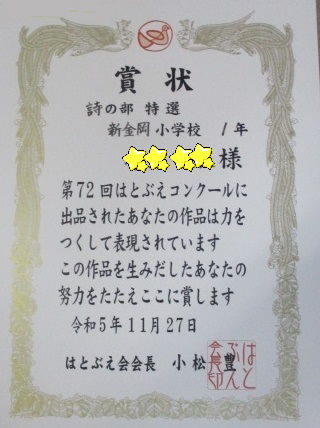 賞状
詩の部 特選
新金岡 小学校 1年
様
第72回はとぶえコンクールに
出品されたあなたの作品は力を
つくして表現されています
この作品を生みだしたあなたの
努力をたたえここに賞します
令和5年11月27日
はとぶえ会会長 小松 豊
はとぶえ会長印